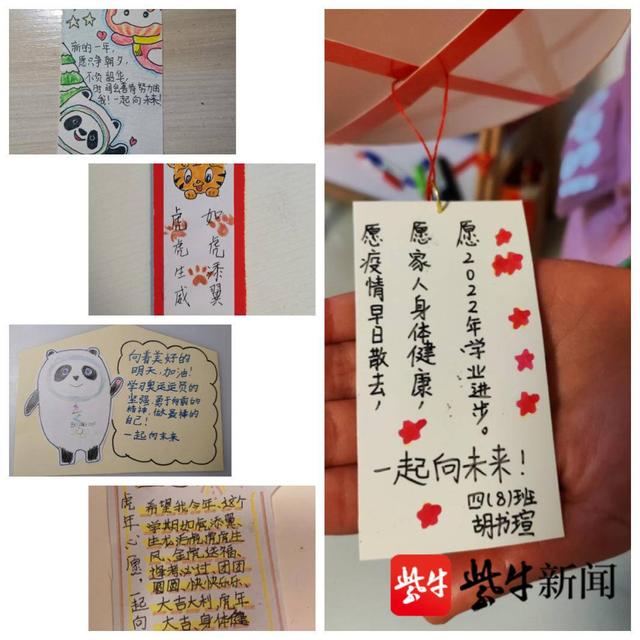 新的一年,
愿只争朝夕,
不负韶华,
时间会善待努力的
我!一起向未来!
如虎添翼
虎虎生威
向着美好的
明天,加油!
学习奥运运员的
坚强、勇于向前的
精神,做最棒的
自己!
一起向未来
虎年心愿:一起向
希望我今年、这个
学期如虎添翼、
生龙活虎、虎虎生
风、金虎送福、
逢考必过、团团
圆圆、快快乐乐、
大吉大利、虎年
大吉、身体健
愿2022年,学业进步。
愿家人身体健康,
愿疫情早日散去,
一起向未来!
四(8)班
胡书瑄
紫牛 紫牛新闻